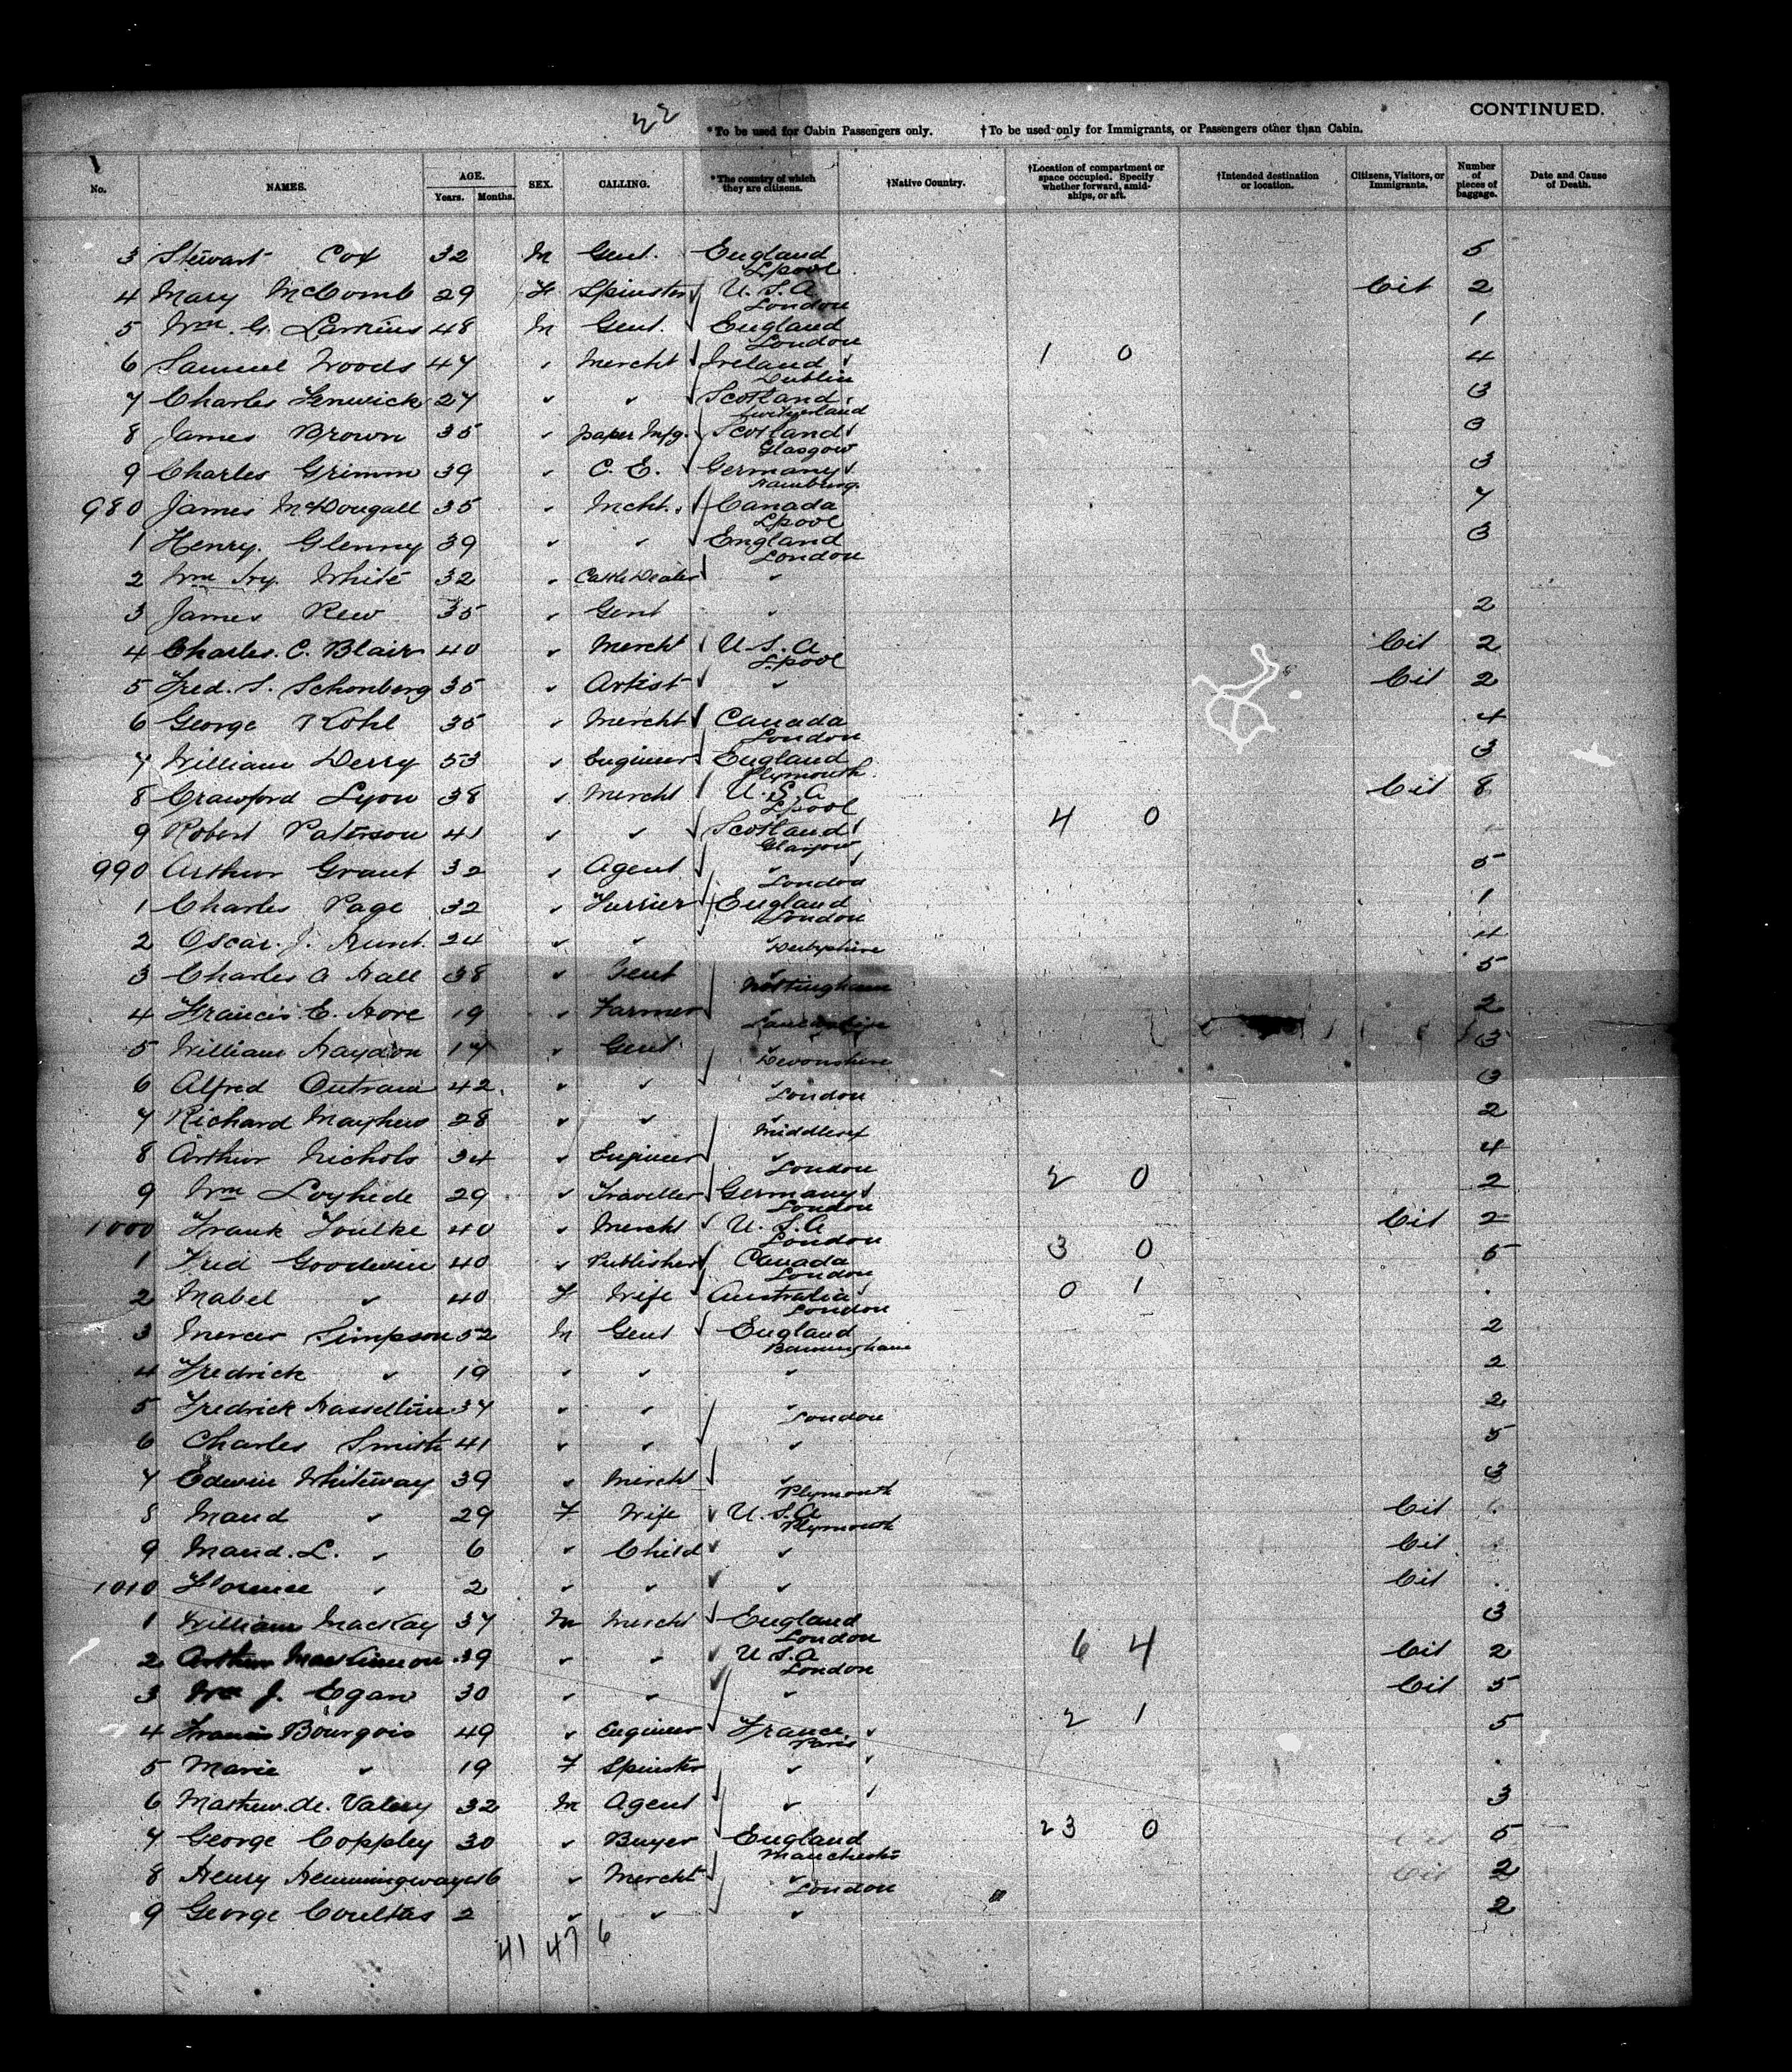 22
CONTINUED.
*To be used for Cabin Passengers only. †To be used only for Immigrants, or Passengers other than Cabin.
No. NAMES. AGE. Years. Months. SEX. CALLING. *The country of which they are citizens. †Native Country. †Location of compartment or space occupied. Specify whether forward, amidships, or aft. †Intended destination or location. Citizens, Visitors, or Immigrants. Number of pieces of baggage. Date and Cause of Death.
3 Stewart Cox 32 M Gent. England 5
L'pool
4 Mary McComb 29 F Spinster U.S.A Cit 2
London
5 Wm. G. Larkins 48 M Gent. England 1
London
6 Samuel Woods 47 " Mercht Ireland 1 0 4
Dublin
7 Charles Fenwick 27 " " Scotland 3
Switzerland
8 James Brown 35 " paper Mfg. Scotland 3
Glasgow
9 Charles Grimm 39 " C. E. Germany 3
Hamburg
980 James McDougall 35 " Mcht. Canada 7
L'pool
1 Henry. Glenny 39 " " England 3
London
2 Wm Hy. White 32 " Cattle Dealer "
3 James Rew 35 " Gent " 2
4 Charles. C. Blair 40 " Mercht U.S.A Cit 2
L'pool
5 Fred. S. Schonberg 35 " Artist " Cit 2
6 George Kohl 35 " Mercht Canada 4
London
7 William Derry 53 " Engineer England 3
Plymouth
8 Crawford Lyon 38 " Mercht U.S.A Cit 8
L'pool
9 Robert Paterson 41 " " Scotland 4 0
Glasgow
990 Arthur Grant 32 " Agent " 5
London
1 Charles Page 32 " Furrier England 1
London
2 Oscar. J. Hunt. 24 " " " 4
Derbyshire
3 Charles A Hall 38 " Gent " 5
Nottingham
4 Francis. E. Hore 19 " Farmer " 2
Lancashire
5 William Haydon 17 " Gent " 3
Devonshire
6 Alfred Outram 42 " " " 3
London
7 Richard Mayhew 28 " " " 2
Middlesex
8 Arthur Nichols 34 " Engineer " 4
London
9 Wm 29 " Traveller Germany 2 0 2
London
1000 Frank Foulke 40 " Mercht U.S.A Cit 2
London
1 Fred Goodwin 40 " Publisher Canada 3 0 5
London
2 Mabel " 40 F Wife Australia 0 1
London
3 Mercer Simpson 52 M Gent England 2
Birmingham
4 Fredrick " 19 " " " 2
5 Fredrick Hasseltine 37 " " " 2
London
6 Charles Smith 41 " " " 5
7 Edwin Whiteway 39 " Mercht " 3
Plymouth
8 Maud " 29 F Wife U.S.A Cit
Plymouth
9 Maud. L. " 6 " Child " Cit
1010 Florence " 2 " " " Cit
1 William MacKay 37 M Mercht England 3
London
2 Arthur MacKinnon 39 " " U.S.A 6 4 Cit 2
London
3 Wm J. Egan 30 " " " Cit 5
4 Francis Bourgois 49 " Engineer France 2 1 5
Paris
5 Marie " 19 F Spinster "
6 Mathew. de. Valery 32 M Agent " 3
7 George Coppley 30 " Buyer England 23 0 Cit 5
Manchester
8 Henry Hemmingway 46 " Mercht " Cit 2
London
9 George Coultas 2 " " " 2
41 47 6